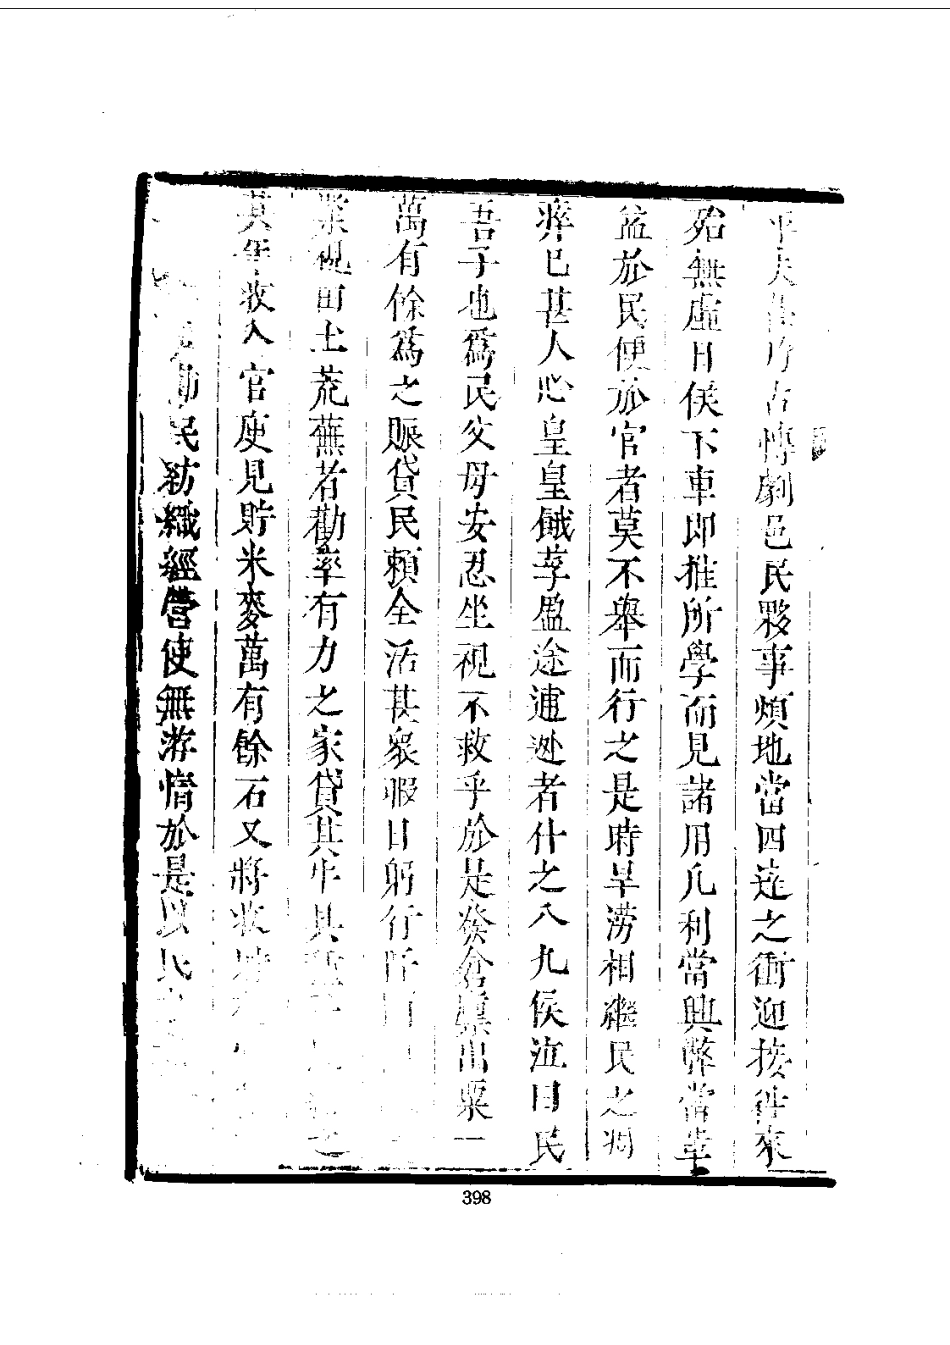 平夫 古愽劇邑民夥事煩地當四達之衝迎接徃來
殆無虛日侯下車即推所學而見諸用凡利當興弊當革
益於民便於官者莫不舉而行之是時旱澇相繼民之凋
瘁已甚人心皇皇餓莩盈途逋逃者什之八九侯泣曰民
吾子也爲民父母安忍坐視不救乎於是發倉廩出粟一
萬有餘爲之賑貸民賴全活甚衆暇日躬行阡
業視田土荒蕪者勸率有力之家貸其牛具 之
其年收入官庾見貯米麥萬有餘石又將收
勸民紡織經營使無游惰於是以民
398